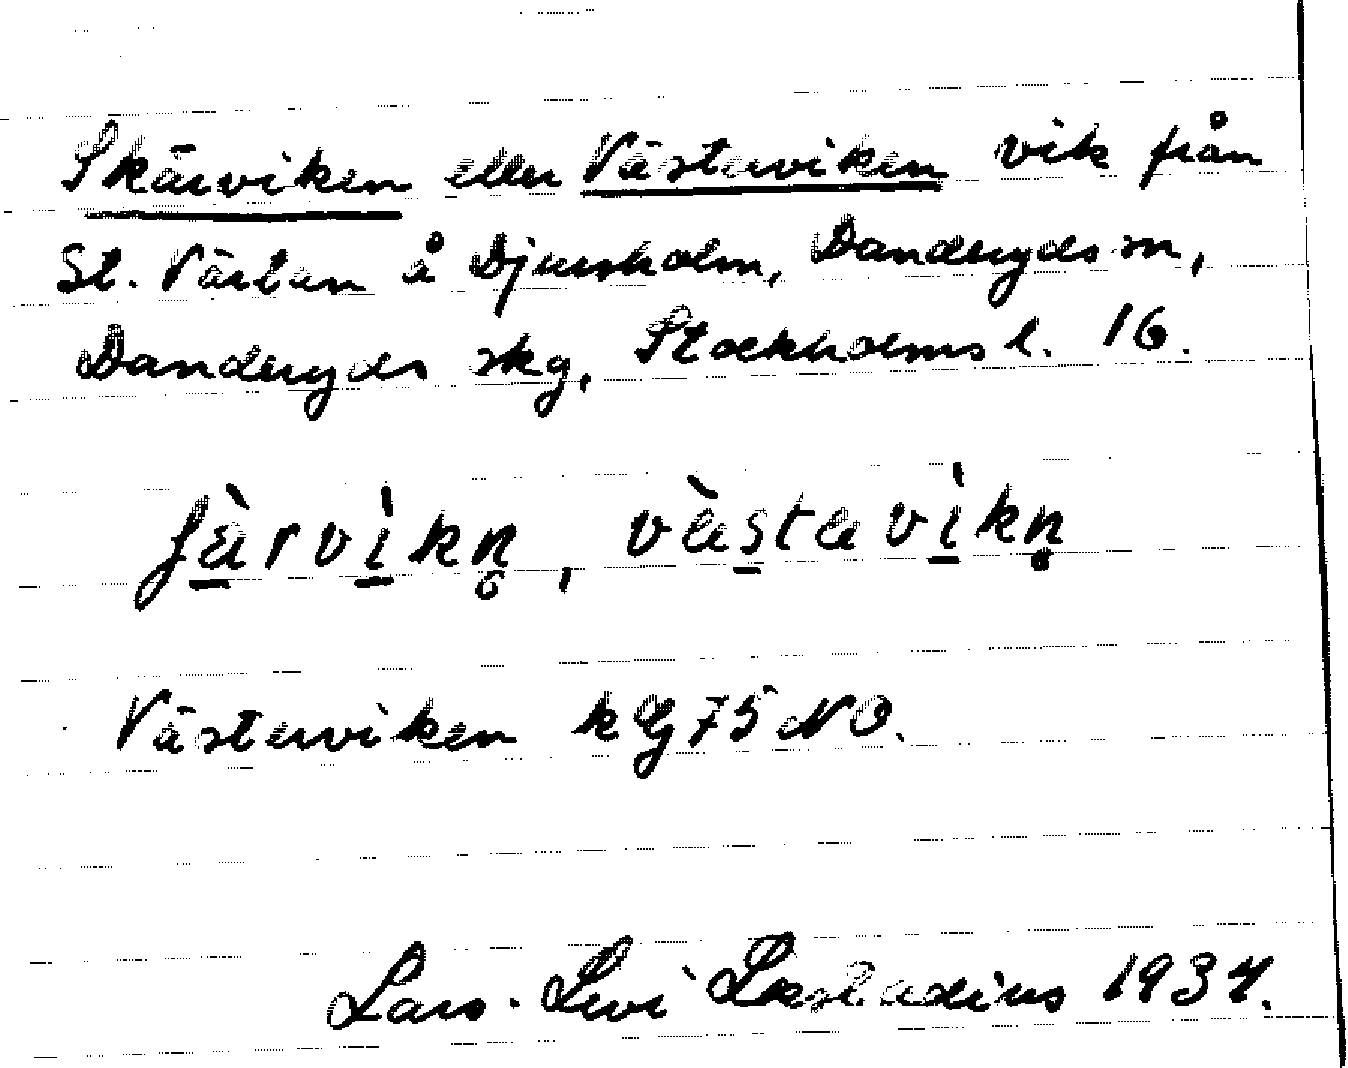 Skärviken eller Västerviken vik från
St. Värtan å Djursholm, Danderyds sn,
Danderyds skg, Stockholms l. 16.
ʃàrvìkn̥, vàstavìkn̥
Västerviken k Lg 75 NO.
Lars-Levi Læstadius 1934.